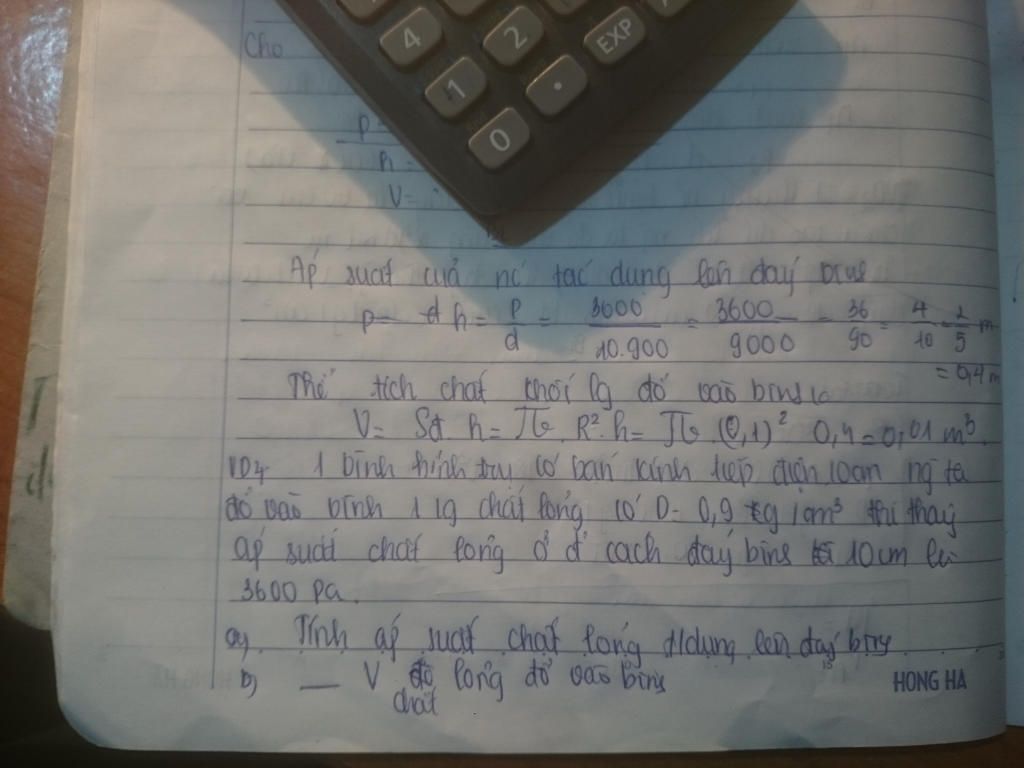 4 2 EXP
1 .
0
Cho
p=
h=
V=
Áp suất của nó tác dụng lên đáy bình
p= d h = p/d = 3600/10.900 = 3600/9000 = 36/90 = 4/10 = 2/5 m
= 0,4 m
Thể tích chất lg đổ vào bình
V= Sđ. h = π. R². h = π. (0,1)² 0,4 = 0,01 m³.
VD4 1 bình hình trụ có bán kính tiếp diện 10cm ng ta
đổ vào bình 1 lg chất lỏng có D= 0,9 g/cm³ thì thấy
áp suất chất lỏng ở cách đáy bình 10cm là
3600 Pa.
a) Tính áp suất chất lỏng t/dụng lên đáy bình
b) — V chất lỏng đổ vào bình
HONG HA